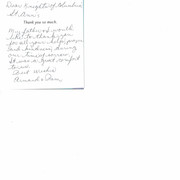 Dear Knights of Columbus
St. Ann's
Thank you so much.
My father & I would
like to thank you
for all your help, prayers
and kindness during
our time of sorrow.
It was a great comfort
to us.
Best Wishes
Amanda &